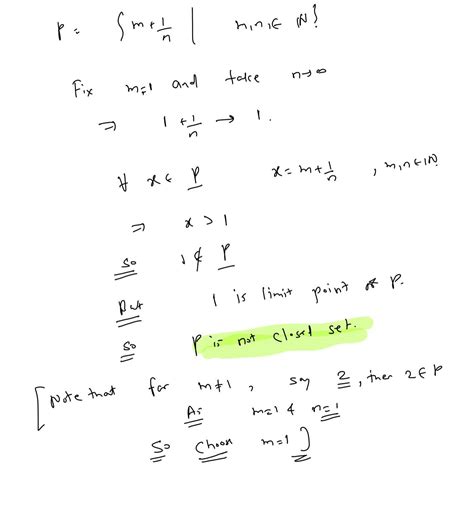 P = { m + 1/n | m, n ∈ N }
Fix m=1 and take n→∞
⇒ 1 + 1/n → 1.
∀ x ∈ P x = m + 1/n , m, n ∈ IN
⇒ x > 1
So 1 ∉ P
But 1 is limit point of P.
So P is not closed set.
[ Note that for m≠1, say 2, then 2 ∈ P
As m=1 & n=1
So Choose m=1 ]